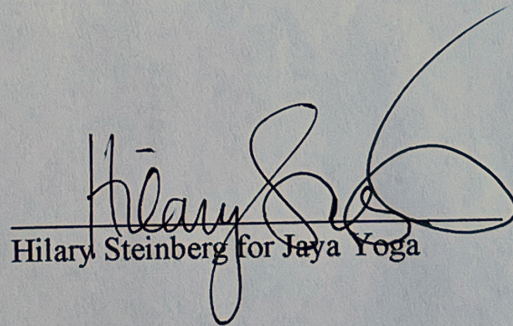 Hilary
Hilary Steinberg for Jaya Yoga